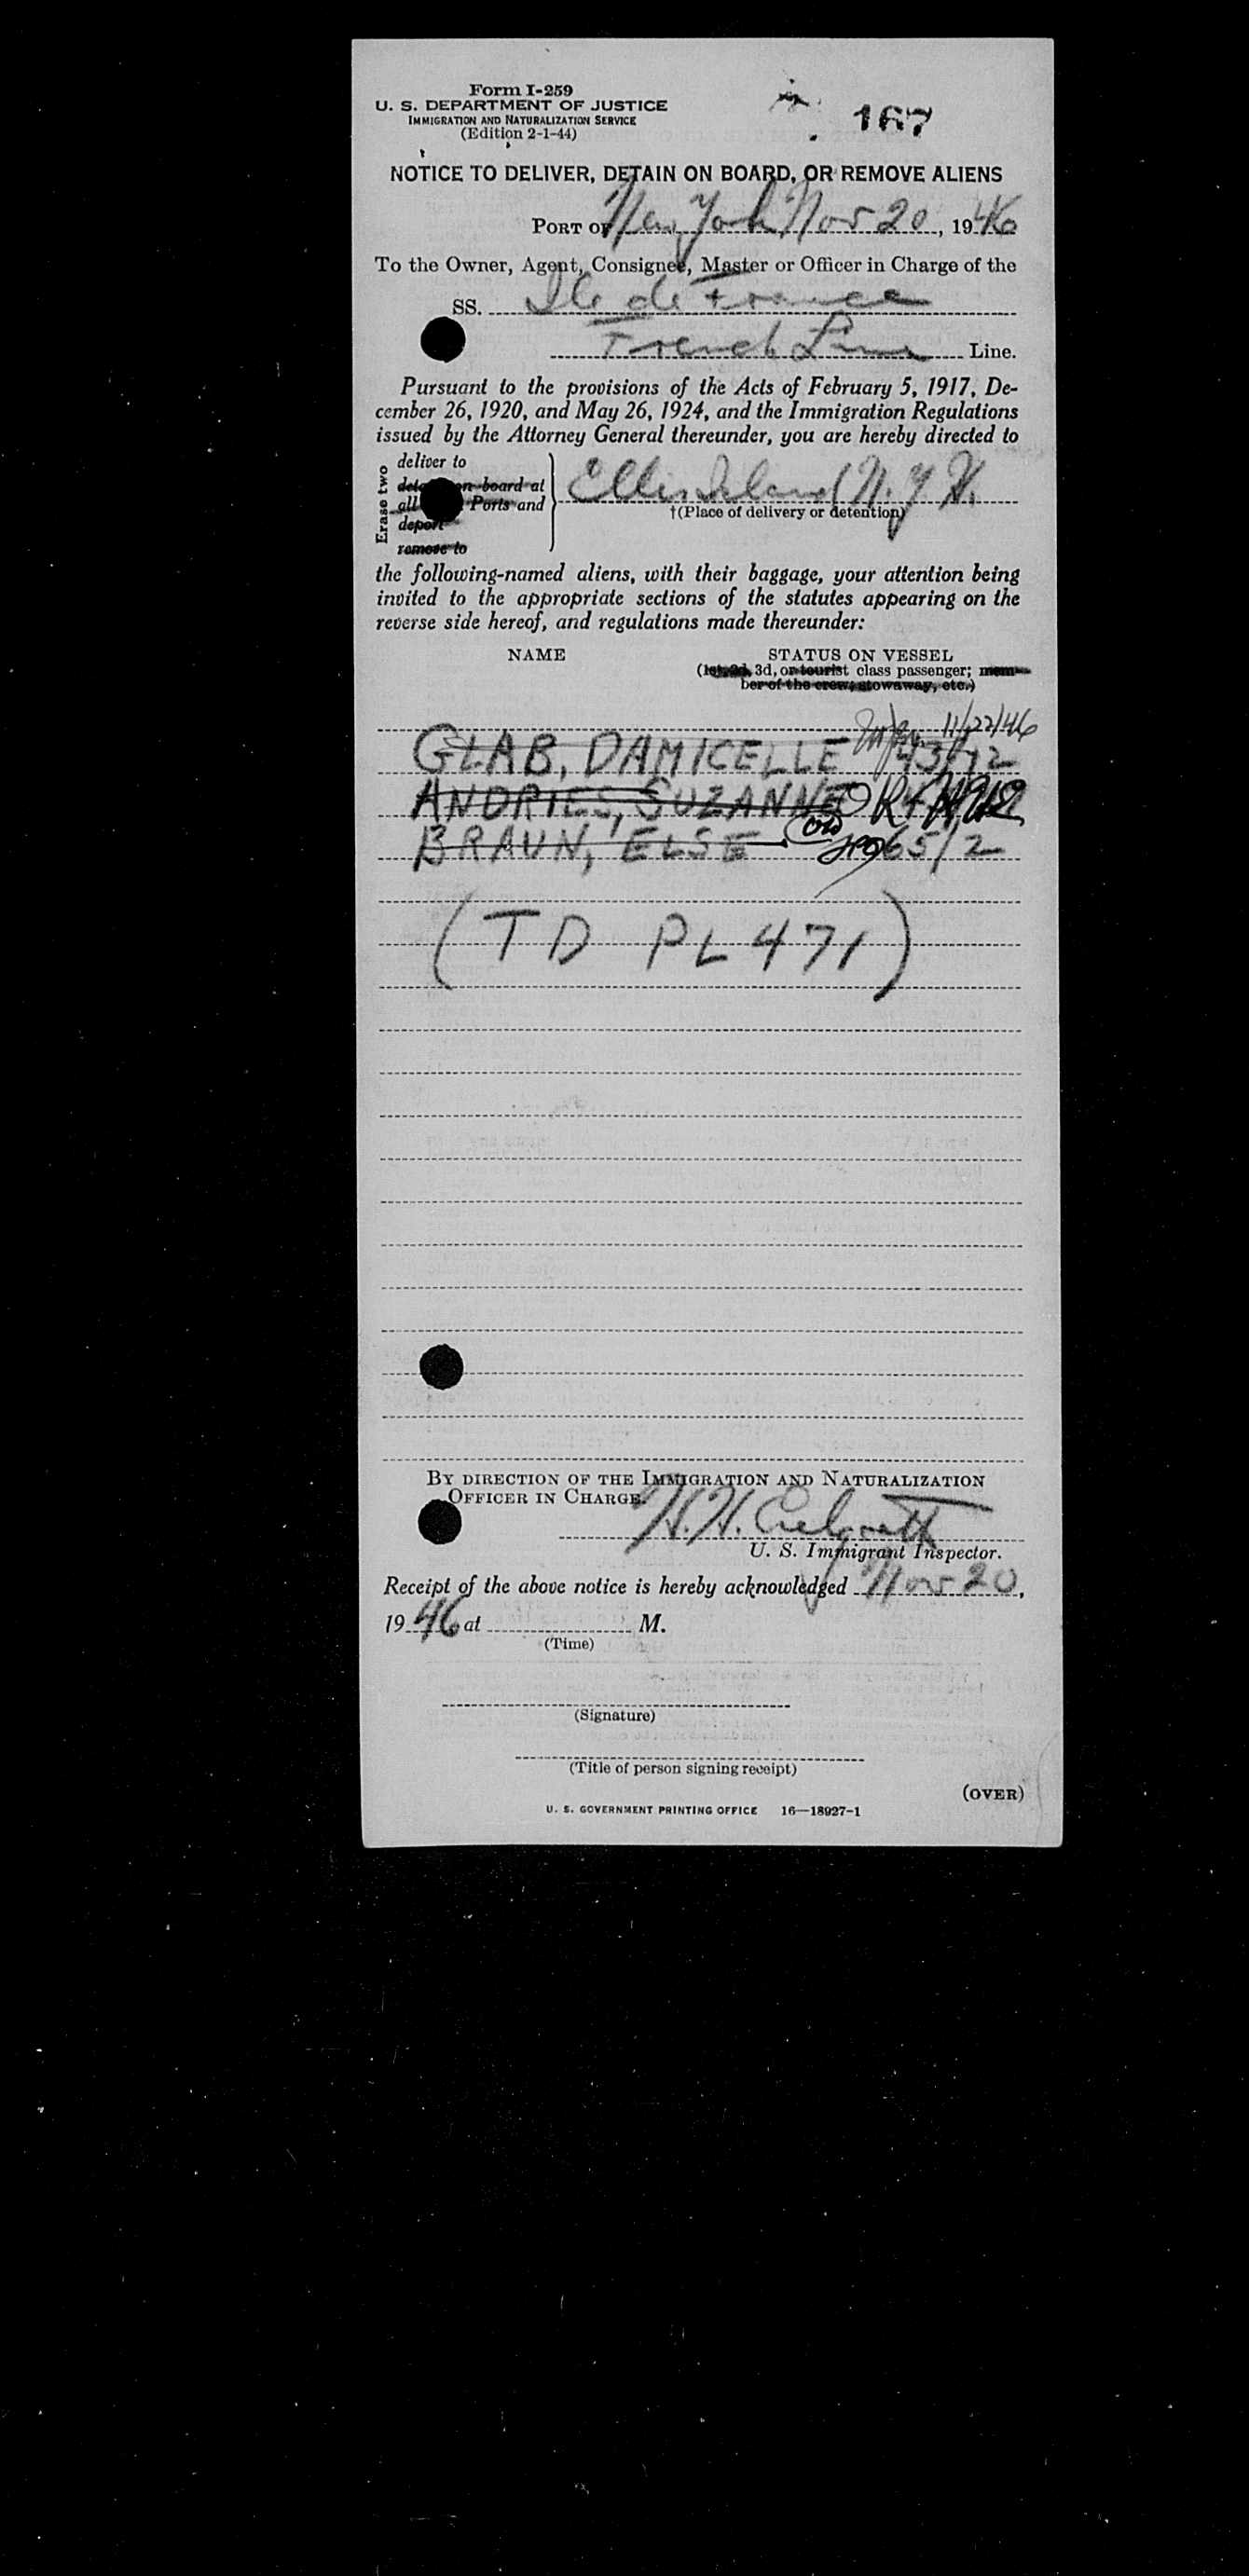 Form I-259
U. S. DEPARTMENT OF JUSTICE
IMMIGRATION AND NATURALIZATION SERVICE
(Edition 2-1-44)
167
NOTICE TO DELIVER, DETAIN ON BOARD, OR REMOVE ALIENS
PORT OF New York Nov 20, 1946
To the Owner, Agent, Consignee, Master or Officer in Charge of the
SS. Ile de France
French Line Line.
Pursuant to the provisions of the Acts of February 5, 1917, De-
cember 26, 1920, and May 26, 1924, and the Immigration Regulations
issued by the Attorney General thereunder, you are hereby directed to
Erase two
deliver to
on board at
all Ports and
deport
remove to
Ellis Island N. Y. H.
†(Place of delivery or detention)
the following-named aliens, with their baggage, your attention being
invited to the appropriate sections of the statutes appearing on the
reverse side hereof, and regulations made thereunder:
NAME STATUS ON VESSEL
3d, or tourist class passenger; mem-
ber of the crew, stowaway, etc.)
11/22/46
GLAB, DAMICELLE 43/12
ANDRIES, SUZANNE OK
BRAUN, ELSE 65/2
(TD PL 471)
BY DIRECTION OF THE IMMIGRATION AND NATURALIZATION
OFFICER IN CHARGE.
H. H.
U. S. Immigrant Inspector.
Receipt of the above notice is hereby acknowledged Nov 20,
1946 at M.
(Time)
(Signature)
(Title of person signing receipt)
(OVER)
U. S. GOVERNMENT PRINTING OFFICE 16—18927-1